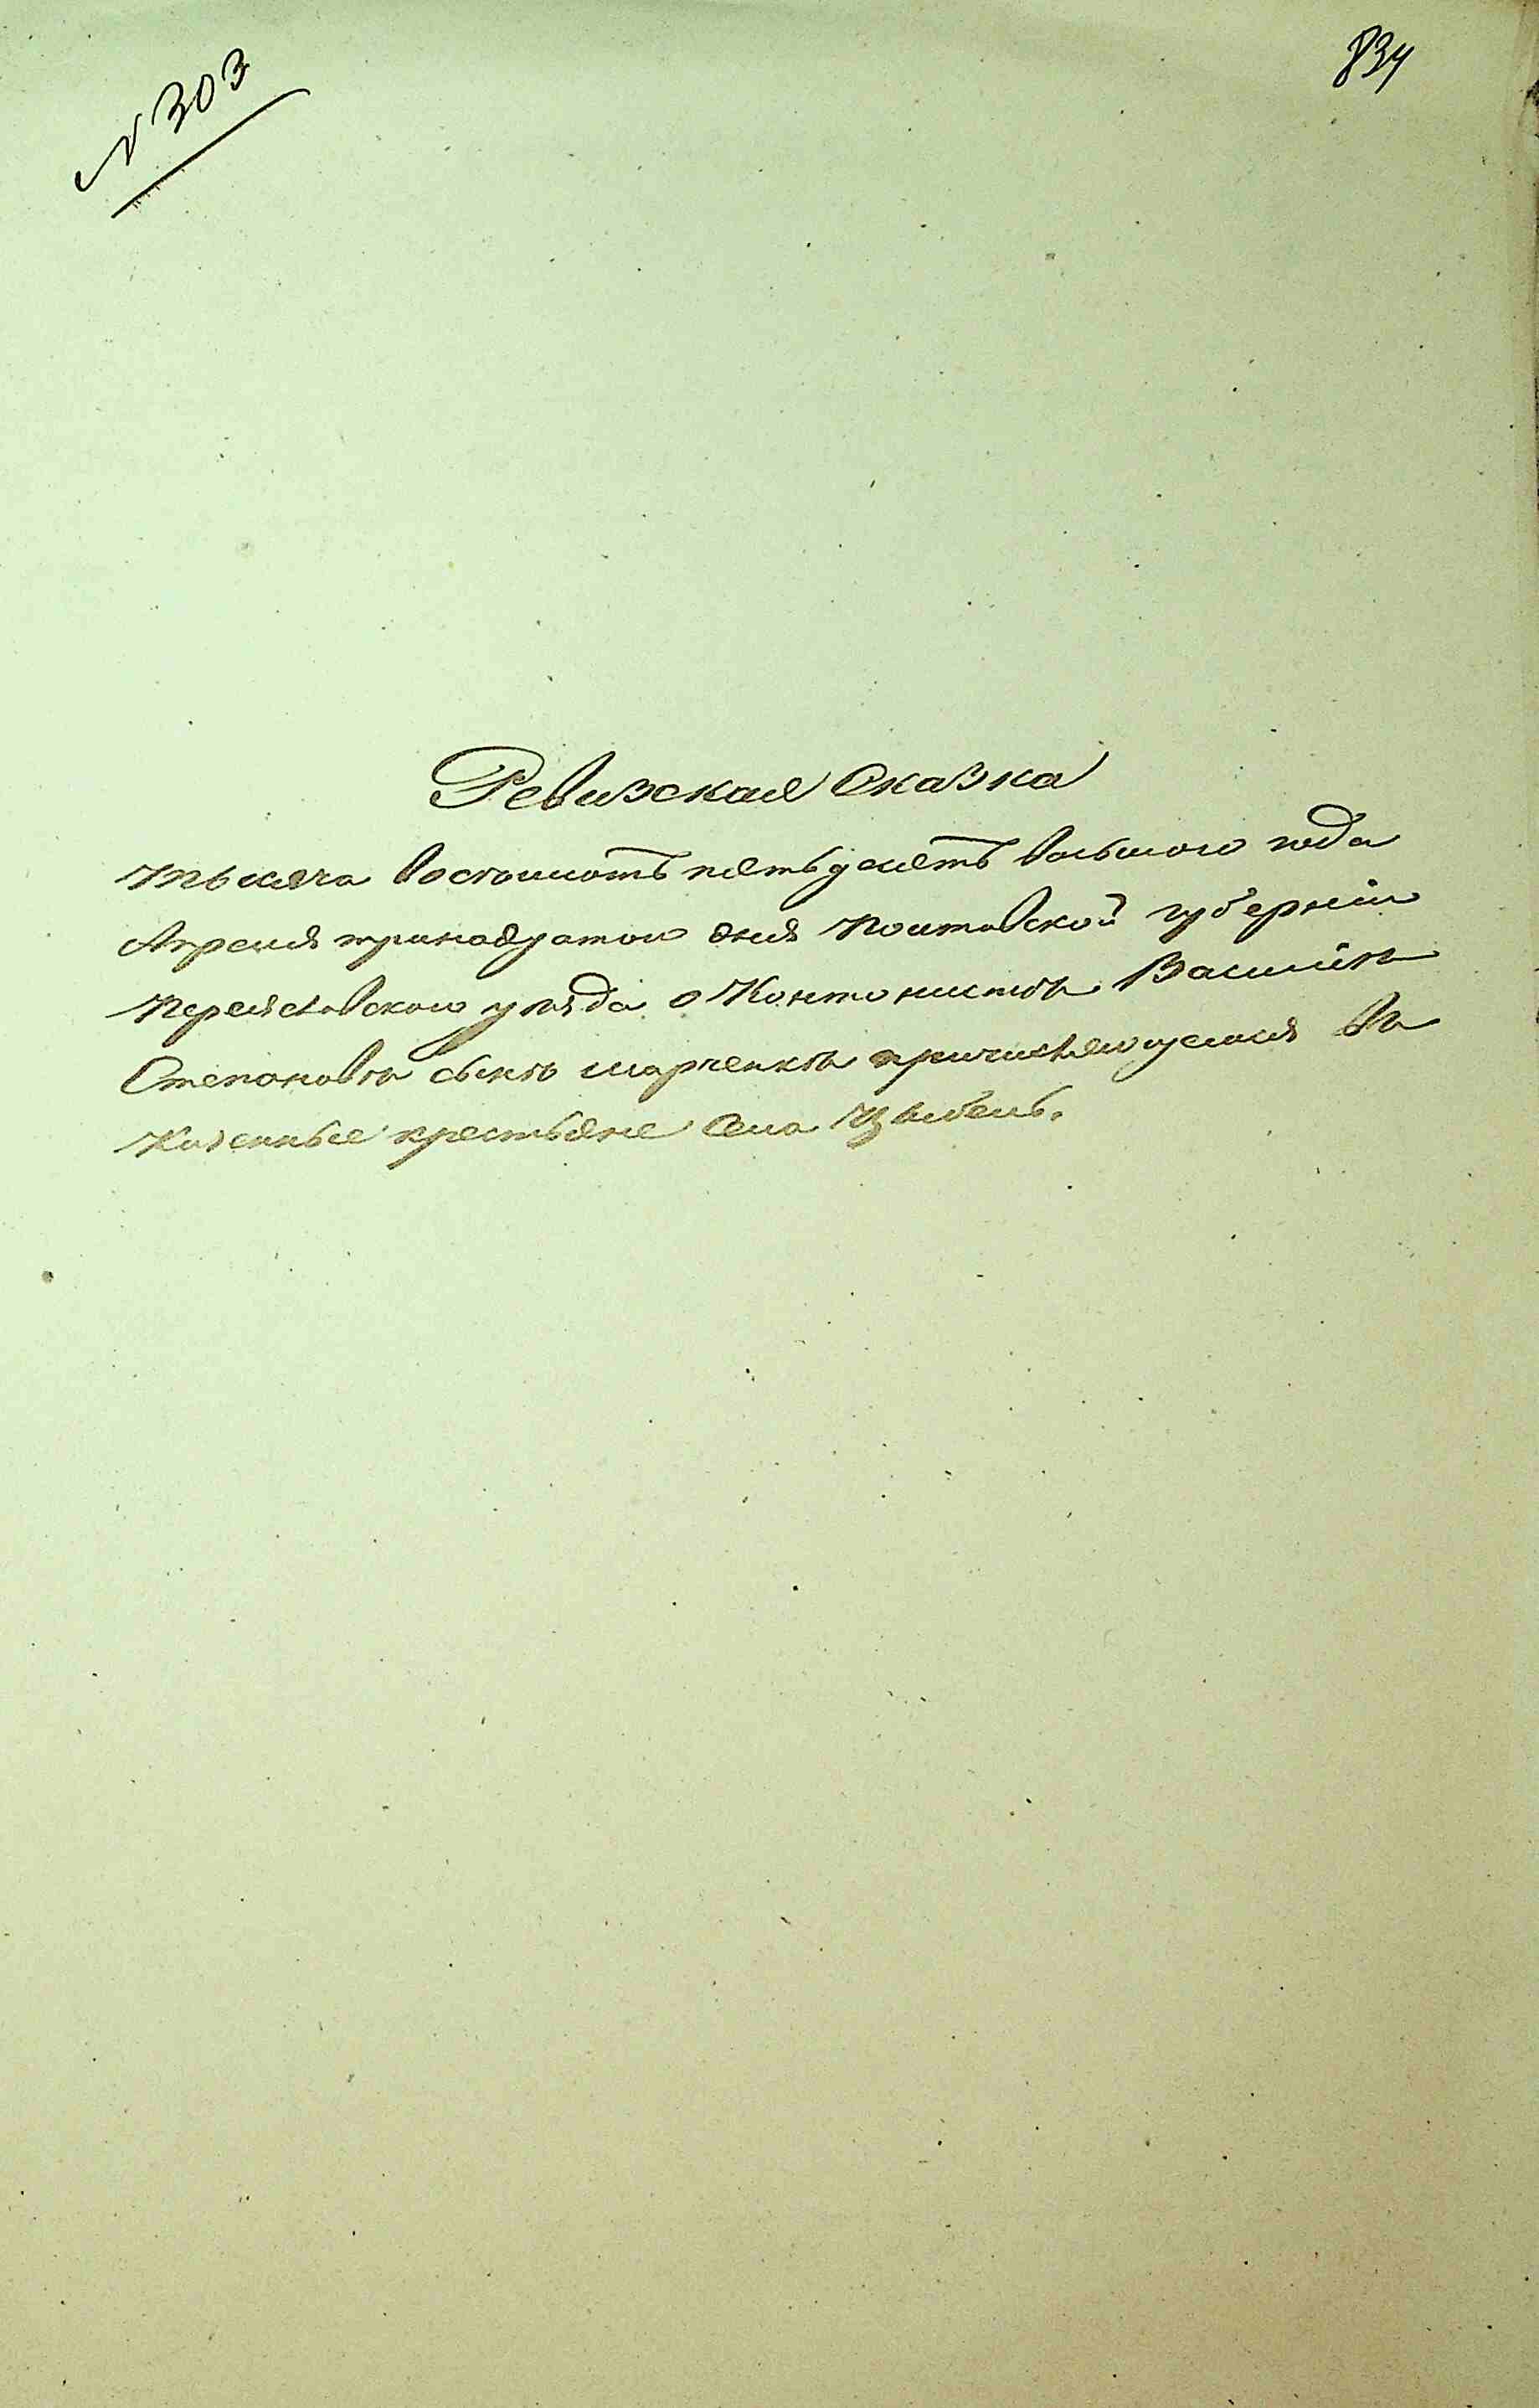 № 303
834
Ревизская Сказка
Тысяча восемьсотъ пятьдесятъ восьмого года
Апреля тринадцатого дня Полтавской губерніи
Переяславского уѣзда о Кантонистѣ Василіѣ
Степановѣ сынѣ Марченкѣ причисляющемся въ
Казенные крестьяне села Цыбель.